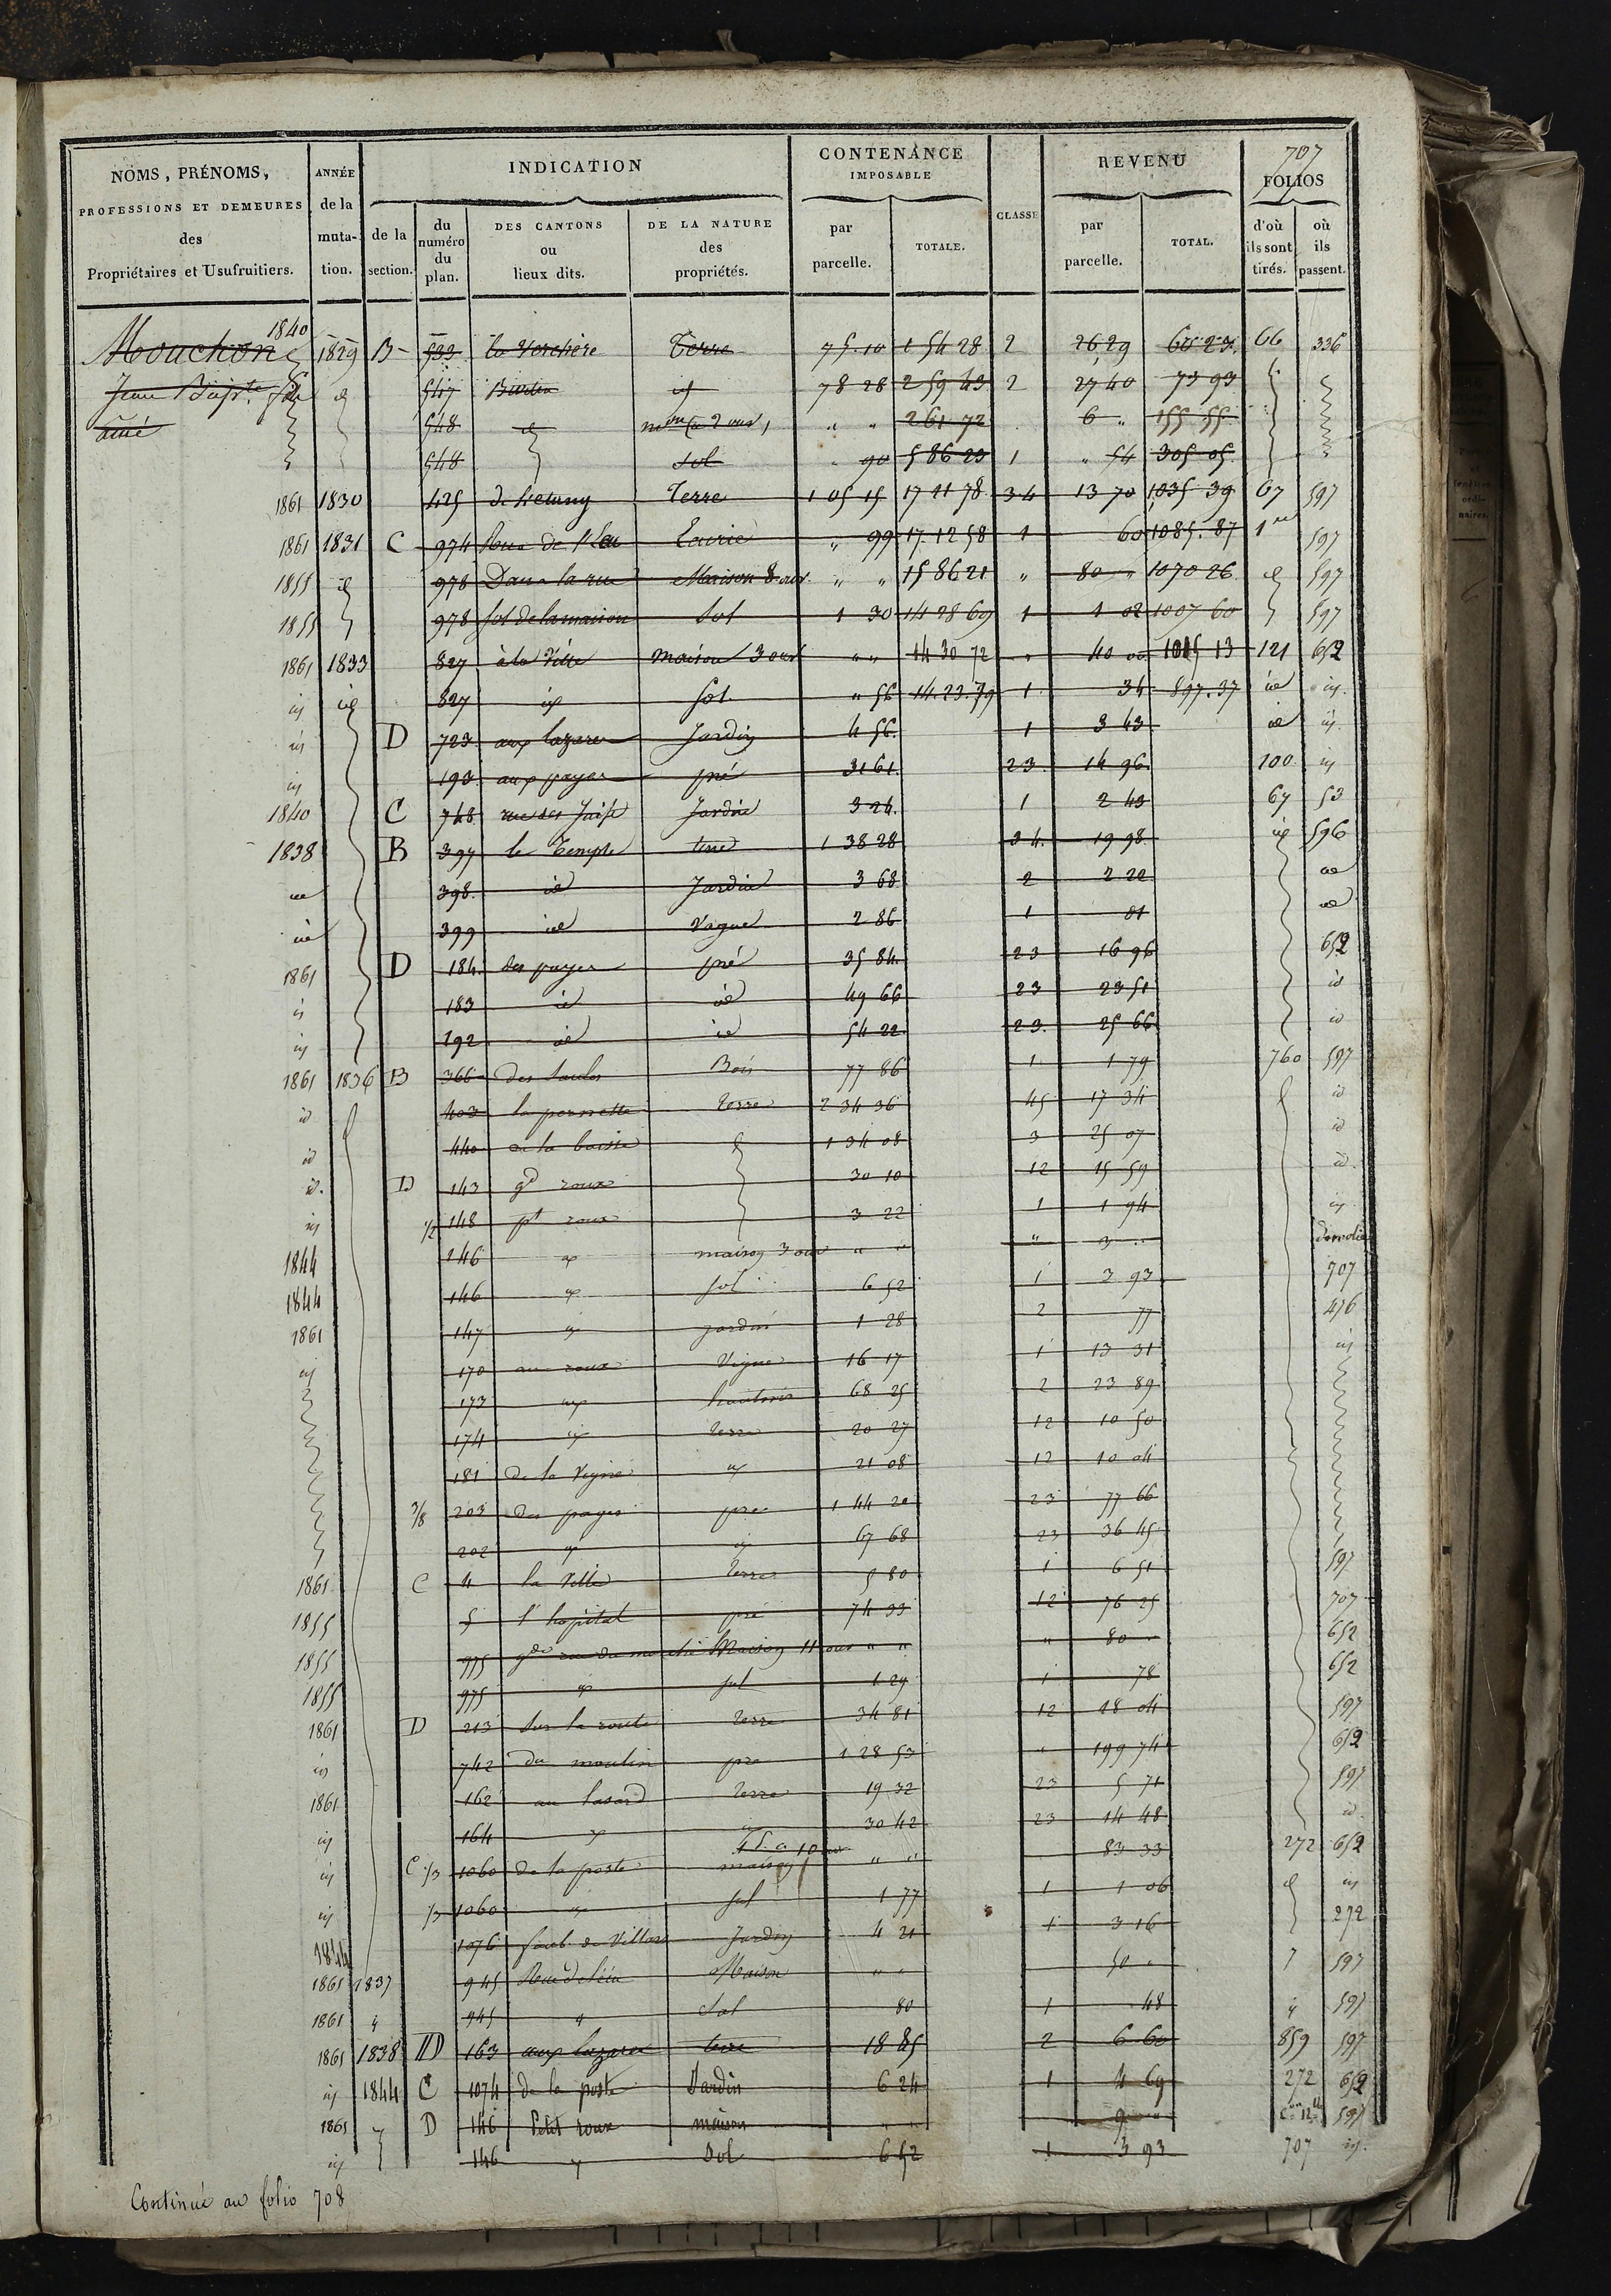 707
NOMS, PRÉNOMS, PROFESSIONS ET DEMEURES des Propriétaires et Usufruitiers.
ANNÉE de la muta- tion.
INDICATION
de la section.
du numéro du plan.
DES CANTONS ou lieux dits.
DE LA NATURE des propriétés.
CONTENANCE IMPOSABLE
par parcelle.
TOTALE.
CLASSE
REVENU
par parcelle.
TOTAL.
FOLIOS
d'où ils sont tirés.
où ils passent.
Mouchon 1840 1829 B 533 la Verchère Terre 75 10 1 54 28 2 26 29 60 23 66 336
Jean Bapte 547 78 28 2 59 43 2 27 40 73 93
ainé 548 " " 2 61 72 6 " 155 55
548 Sol " 90 5 86 23 1 " 54 305 05
1861 1830 425 Terre 1 05 15 17 21 78 3 4 13 70 1035 39 67 597
1861 1831 C 974 Rue de l'Eau Ecurie " 99 17 12 58 1 60 1085.87 597
1855 id 978 Dans la rue Maison 8 ouv " " 15 86 21 " 80 " 1070 26 id 597
1855 978 sol de la maison Sol 1 30 14 28 69 1 1 02 1007 60 597
1861 1833 827 à la Ville Maison 3 ouv " " 14 30 72 " 40 " 13 121 652
id id 827 id Sol " 56 14.23.79 1 34 897.37 id id
id D 723 aux lazares Jardin 4 56 1 3 43 id id
id 193 aux payes pré 31 61 2 3 14 96 100 id
1840 C 748 Jardin 3 24 1 2 43 67 53
1838 B 397 le Temple terre 1 38 28 3 4 19 98 id 596
id 398 id Jardin 3 68 2 2 22 id
id 399 id Vague 2 86 1 01 id
1861 D 184 des payes pré 35 84 2 3 16 96 652
id 183 id id 49 66 2 3 23 51 id
id 192 id id 54 22 2 3 25 66 id
1861 1836 B 366 des Saules Bois 77 86 1 1 79 760 597
id 403 Terre 2 34 36 4 5 17 34 id
id 440 à la 1 34 08 3 25 07 id
id D 143 gd roux 30 10 1 2 15 59 id
id 1/2 148 pt roux 3 22 1 1 94 id
1844 146 id maison 3 ouv " " " 3 " démolie
1844 146 id sol 6 52 1 3 93 707
1861 147 id jardin 1 28 2 77 476
id 170 aux roux Vigne 16 17 1 13 31 id
173 id 68 25 2 23 89
174 id terre 20 27 1 2 10 50
181 de la Vigne id 21 08 1 2 10 04
3/8 203 des payes pré 1 44 20 2 3 77 66
202 id id 67 68 2 3 36 45
1861 C 4 la Ville Terre 5 80 1 6 51 597
1855 5 l'hopital pré 74 33 1 2 76 25 707
1855 975 gde rue du marché Maison 11 ouv " " " 80 " 652
1855 975 id sol 1 29 1 78 652
1861 D 213 sur la route terre 34 81 1 2 18 04 597
id 742 du moulin pré 1 28 53 " 199 74 652
1861 162 au lasard terre 19 32 2 3 5 71 597
id 164 id id 30 42 2 3 14 48 id
id C 1/3 1060 de la poste maison " " 83 33 272 652
id 1/3 1060 id sol 1 77 1 1 06 id id
1844 1076 Jardin 4 21 1 3 16 272
1861 1837 945 Maison " " 50 " 597
1861 " 945 " Sol 80 1 48 " 597
1861 1838 D 163 aux lazares terre 18 85 2 6 60 859 597
id 1844 C 1074 de la poste Jardin 6 24 1 4 69 272 652
1861 D 146 Petit roux maison " " 9 " 597
id 146 " Sol 6 52 1 3 93 707 id
Continué au folio 708